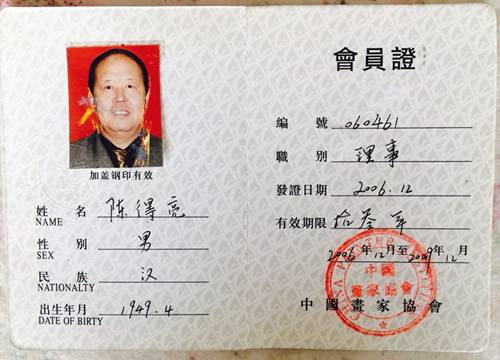 加盖钢印有效
姓 名 陈得亮
NAME
性 别 男
SEX
民 族 汉
NATIONALTY
出生年月 1949.4
DATE OF BIRTY
會員證
編 號 060461
職 别 理事
發證日期 2006.12
有效期限 叁年
2006年12月至2009年12月
中國
畫家協會
中國畫家協會